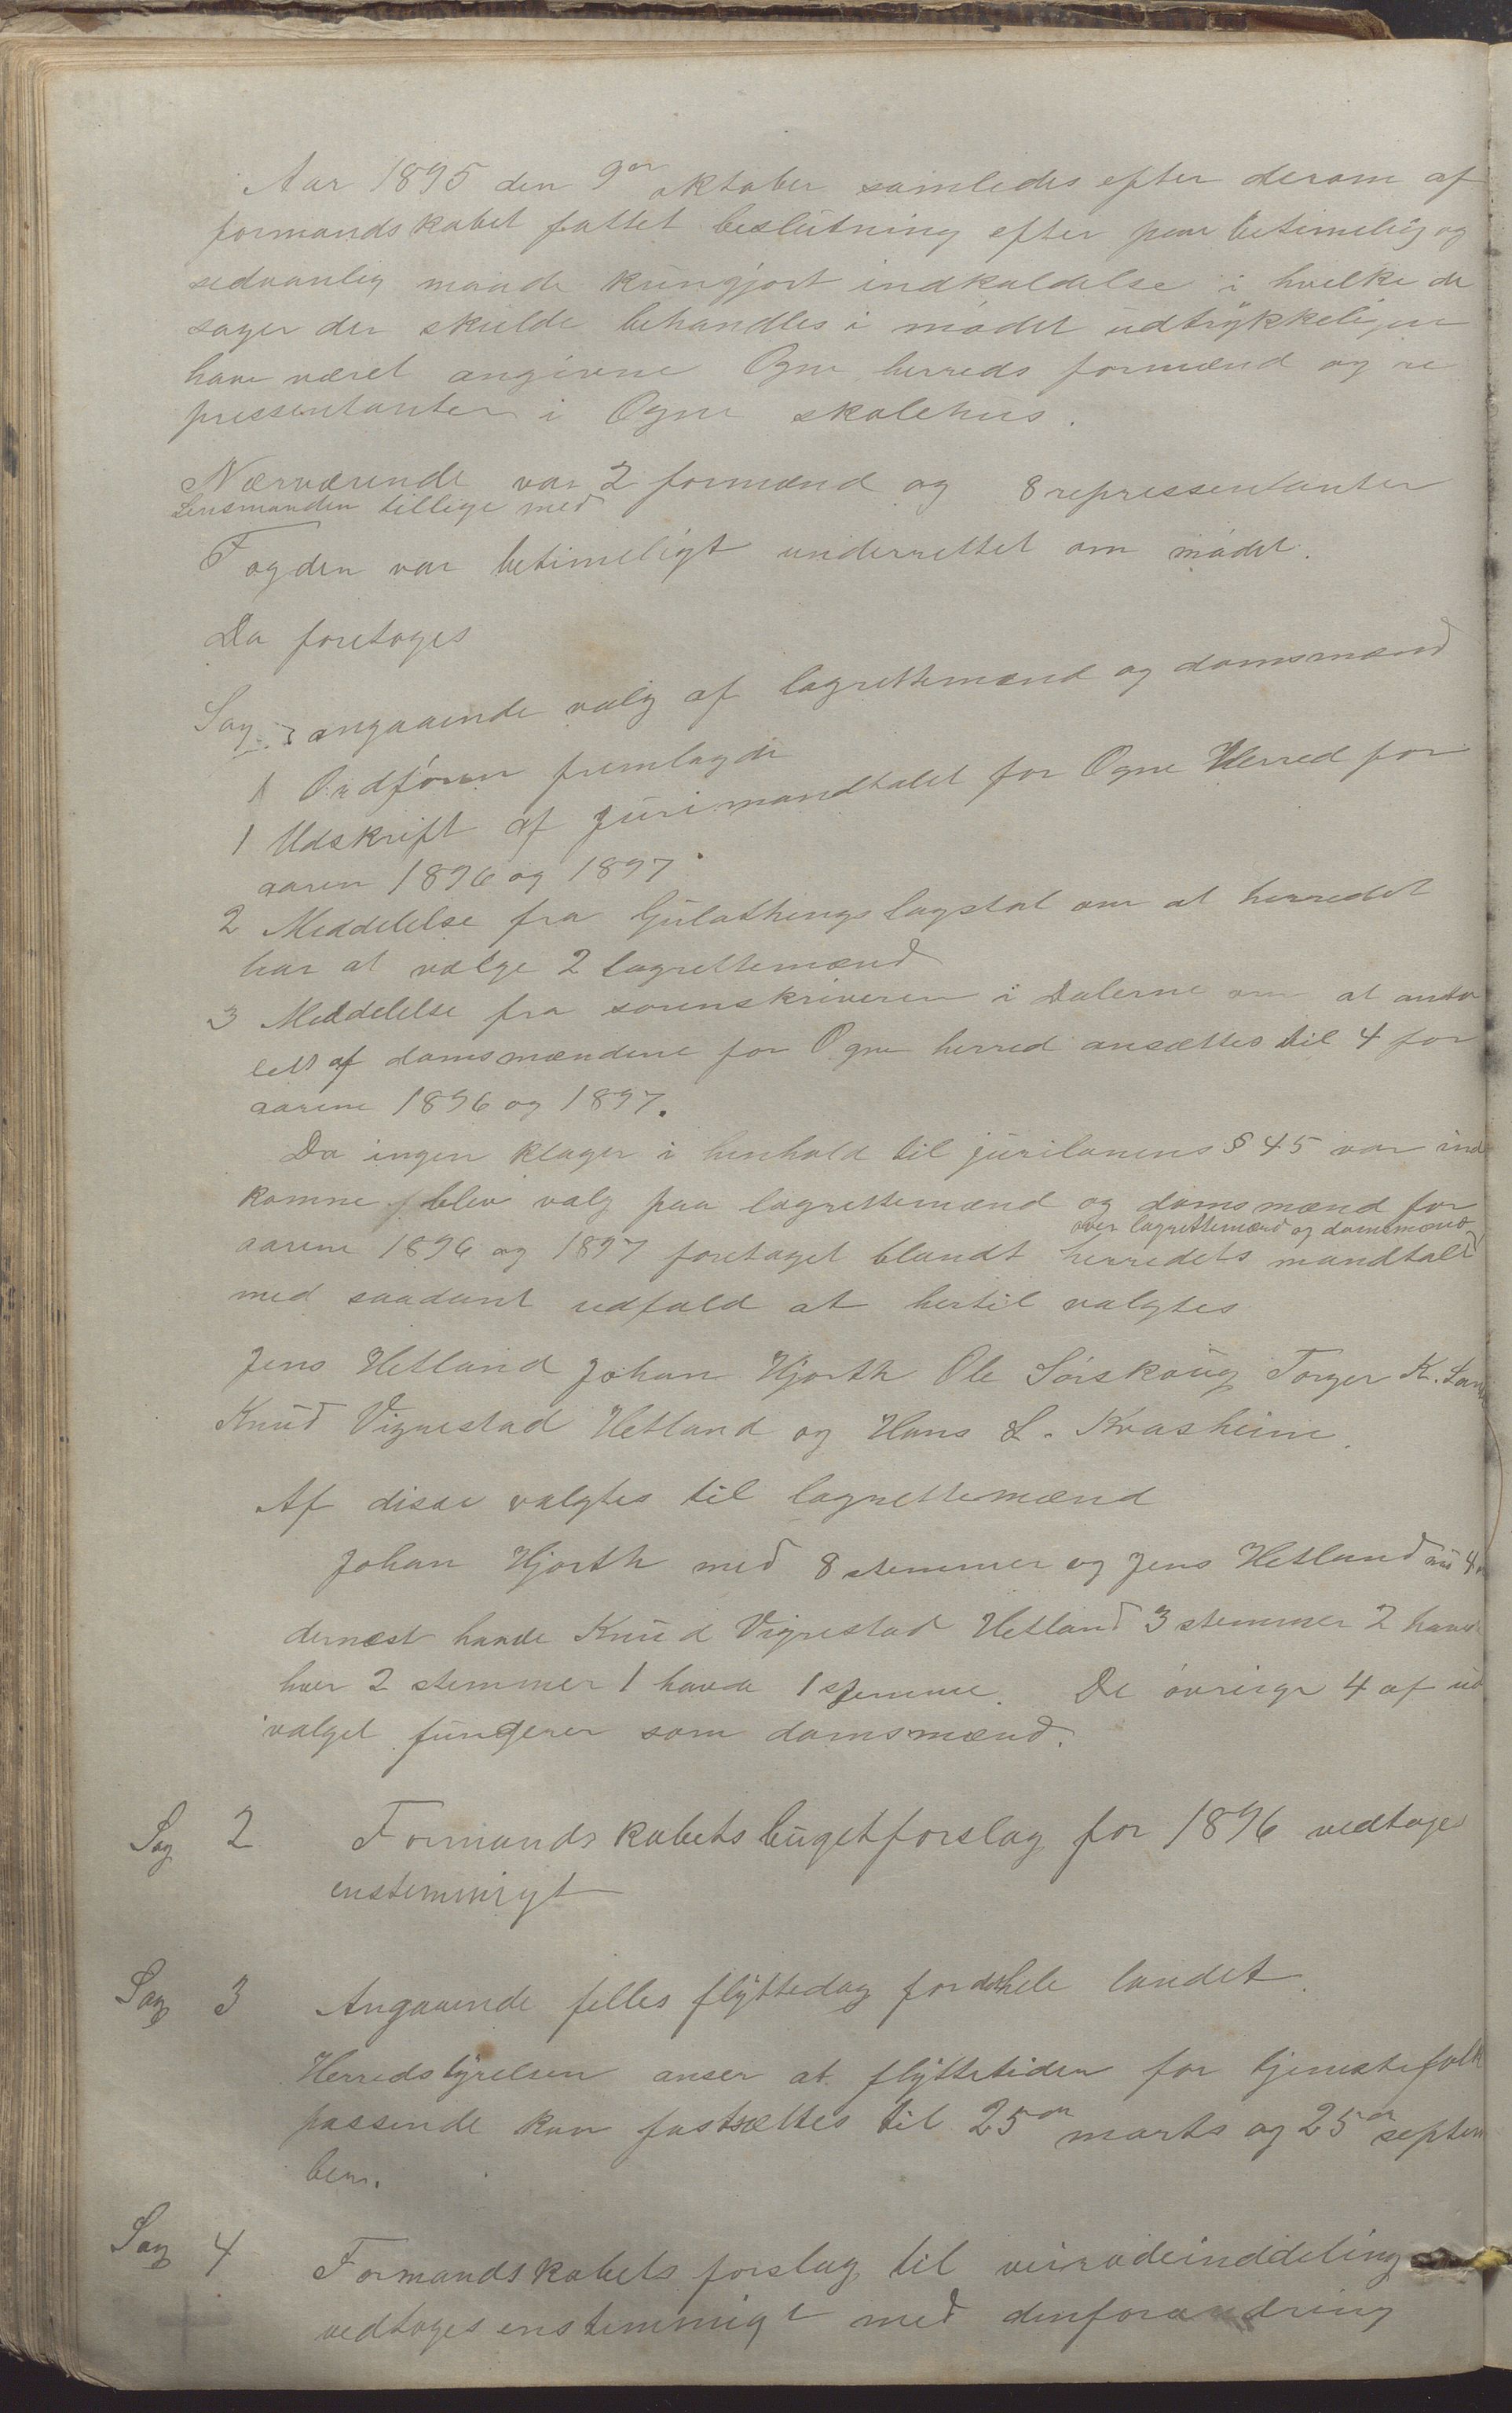 Aar 1895 den 9de oktober samledes efter derom af
formandskabet fattet beslutning efter paa betimelig og
sedvanlig maade kungjort indkaldelse i hvilke de
sager der skulde behandles i mødet udtrykkeligen
have været angivne Ogne herreds formænd og re
pressentanter i Ogne skolehus.
Nærværende var 2 formænd og 8 repressentanter
Lensmanden tillige med
Fogden var betimeligt underrettet om mødet.
Da foretoges
Sag 1 angaaende valg af lagrettemænd og domsmænd
Ordføren fremlagde
1 Udskrift af Jurimandtalet for Ogne Herred for
aaren 1896 og 1897
2 Meddelelse fra Gulathings lagstol om at herredet
har at vælge 2 lagrettemænd
3 Meddelelse fra sorenskriveren i Dalerne om at anta
let af domsmændene for Ogne herred ansættes til 4 for
aarene 1896 og 1897.
Da ingen klager i henhold til jurilovens § 45 var ind
komne blev valg paa lagrettemænd og domsmænd for
over lagrettemænd og domsmænd
aarene 1896 og 1897 foretaget blandt herredets mandtall
med saadant udfald at hertil valgtes
Jens Hetland Johan Hjorth Ole Sørskoug Torger K.
Knud Vignestad Hetland og Hans L. Kvasheim.
Af disse valgtes til lagrettemænd
Johan Hjorth med 8 stemmer og Jens Hetland 4
dernæst havde Knud Vignestad Hetland 3 stemmer 2 havde
hver 2 stemmer 1 havde 1 stemme. De øvrige 4 af ud
valget fungerer som domsmænd.
Sag 2 Formandskabets bugetforslag for 1896 vedtoges
enstemmigt
Sag 3 Angaaende felles flyttedag for det hele landet.
Herredstyrelsen anser at flyttetiden for tjenestefolk
passende kan fastsættes til 25de marts og 25de septem
ber.
Sag 4 Formandskabets forslag til veirodeinddeling
vedtoges enstemmigt med den forandring